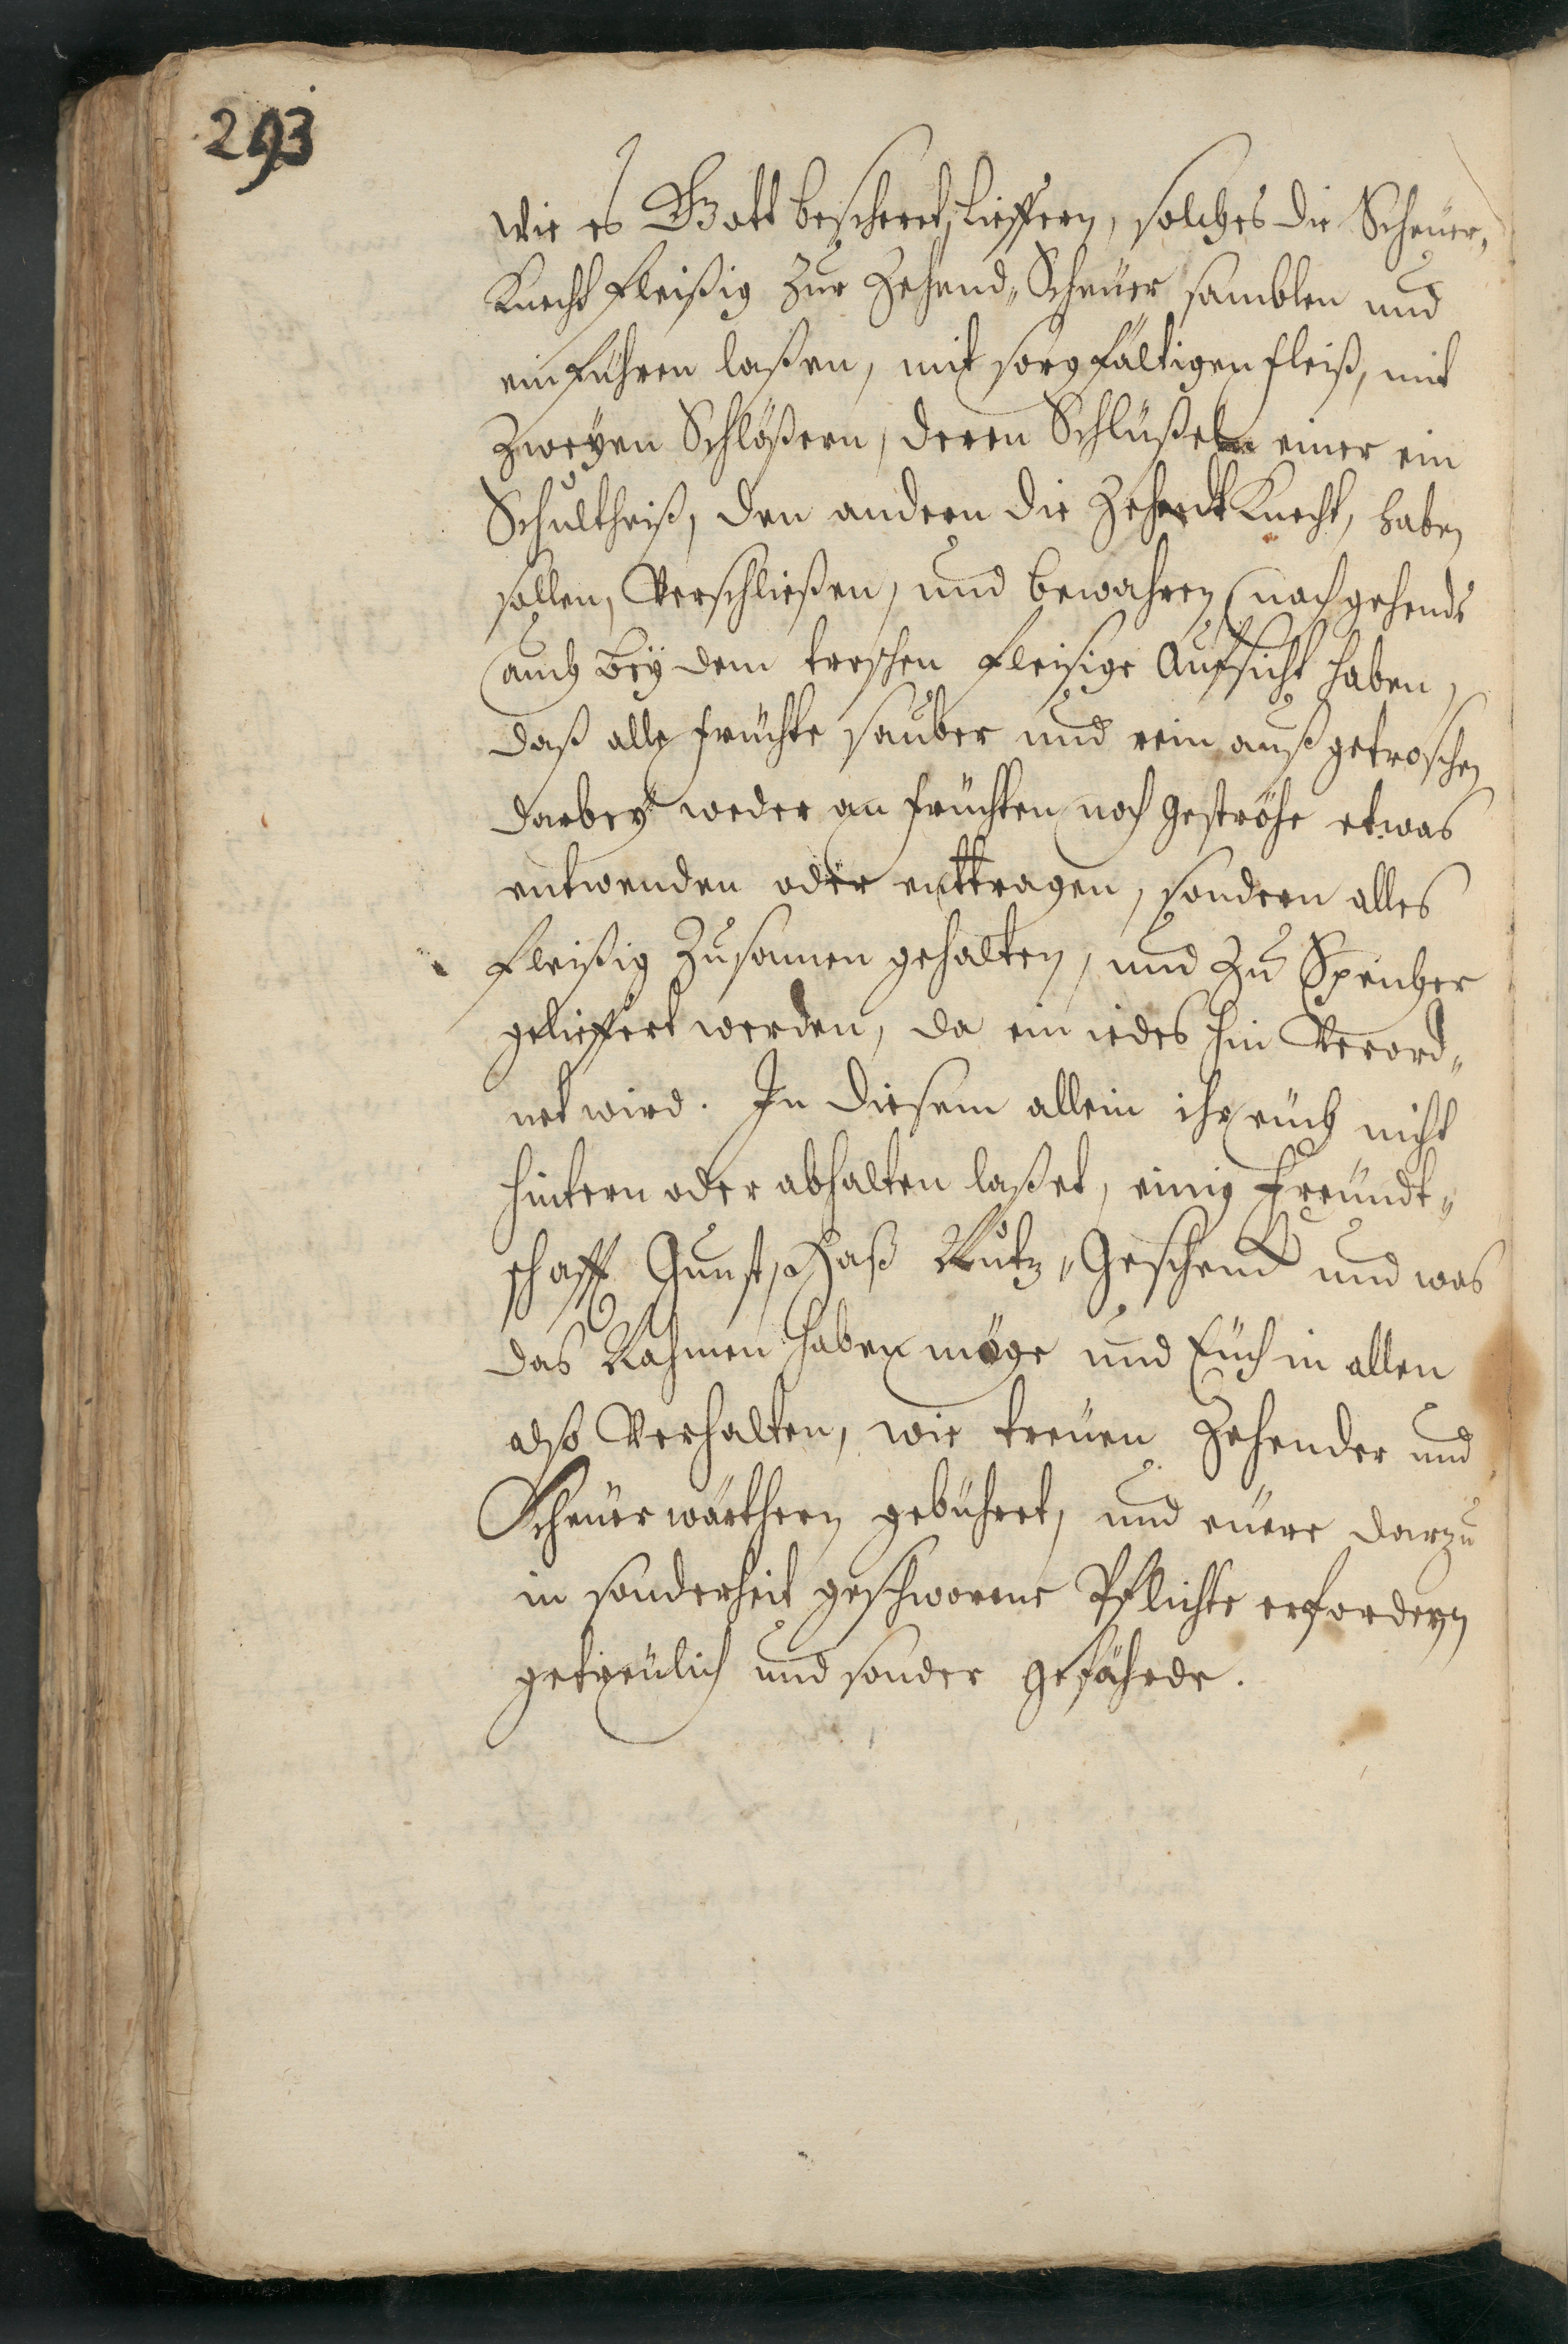 293
wie es Gott bescheret, lieffern, solches die Scheuer„
Knecht fleißig zur Zehend„Scheuer samblen und
einführen laßen, mit sorgfältigen fleiß, mit
Zweyen Schlößern, deren Schlüßeln einer ein
Schultheiß, den andern die Zehendt Knecht, haben
sollen, Verschließen, und bewahren, nachgehends
auch bey dem treschen fleisige Aufsicht haben,
daß alle früchte sauber und rein außgetroschen
darbey weder an früchten noch geströhe etwas
entwenden oder enttragen, sondern alles
fleißig Zusamen gehalten, und Zu Speicher
gelieffert werden, da ein iedes hin Verord„
net wird. In diesem allein ihr euch nicht
hintern oder abhalten laßet, einig Freundt„
schafft Gunst, Haß Nutz„Geschenck und was
das Nahmen haben möge und Euch in allen
also Verhalten, wie treuen Zehender und
Scheuerwärthern gebühret, und euere darzu
in sonderheit geschworene Pflichte erfordern
getreulich und sonder gefährde.